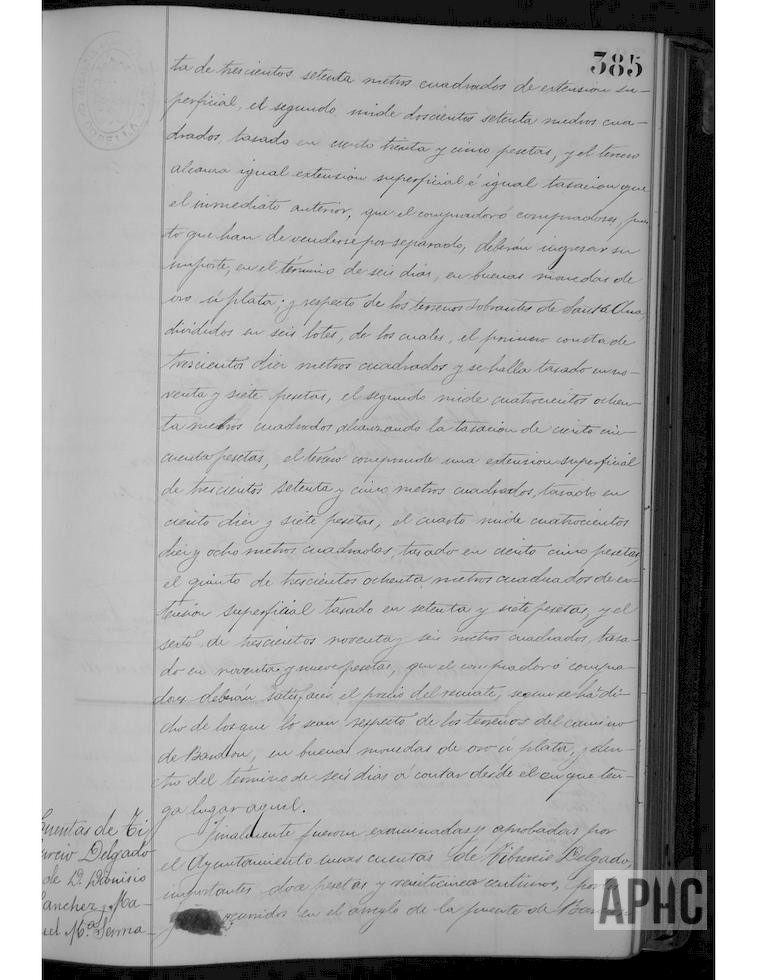 385
ta de trescientos setenta metros cuadrados de extension su-
perficial, el segundo mide doscientos setenta metros cua-
drados, tasado en ciento treinta y cinco pesetas, y el tercero
alcanza igual extension superficial é igual tasacion que
el inmediato anterior, que el comprador ó compradores, pues-
to que han de venderse por separado, deberán ingresar su
importe, en el término de seis dias, en buenas monedas de
oro ú plata; y respecto de los terrenos sobrantes de Santa Ana,
divididos en seis lotes, de los cuales, el primero consta de
trescientos diez metros cuadrados y se halla tasado en no-
venta y siete pesetas, el segundo mide cuatrocientos ochen-
ta metros cuadrados alcanzando la tasacion de ciento cin-
cuenta pesetas, el tercero comprende una extension superficial
de trescientos setenta y cinco metros cuadrados, tasado en
ciento diez y siete pesetas, el cuarto mide cuatrocientos
diez y ocho metros cuadrados, tasado en ciento cinco pesetas,
el quinto de trescientos ochenta metros cuadrados de ex-
tension superficial tasado en setenta y siete pesetas, y el
sexto de trescientos noventa y seis metros cuadrados, tasa-
do en noventa y nueve pesetas, que el comprador ó compra-
dores deberán satisfacer el precio del remate, segun se ha di-
cho de los que lo sean respecto de los terrenos del camino
de Bandon, en buenas monedas de oro ú plata, y den-
tro del término de seis dias á contar desde el en que ten-
ga lugar aquel.
Cuentas de Ti
burcio Delgado
de D. Dionisio
Sanchez, Ma-
uel Mª Serna-
Finalmente fueron examinadas y aprobadas por
el Ayuntamiento unas cuentas de Tiburcio Delgado,
importantes doce pesetas y veinticinco centimos, por
en el arreglo de la puente de
APHC